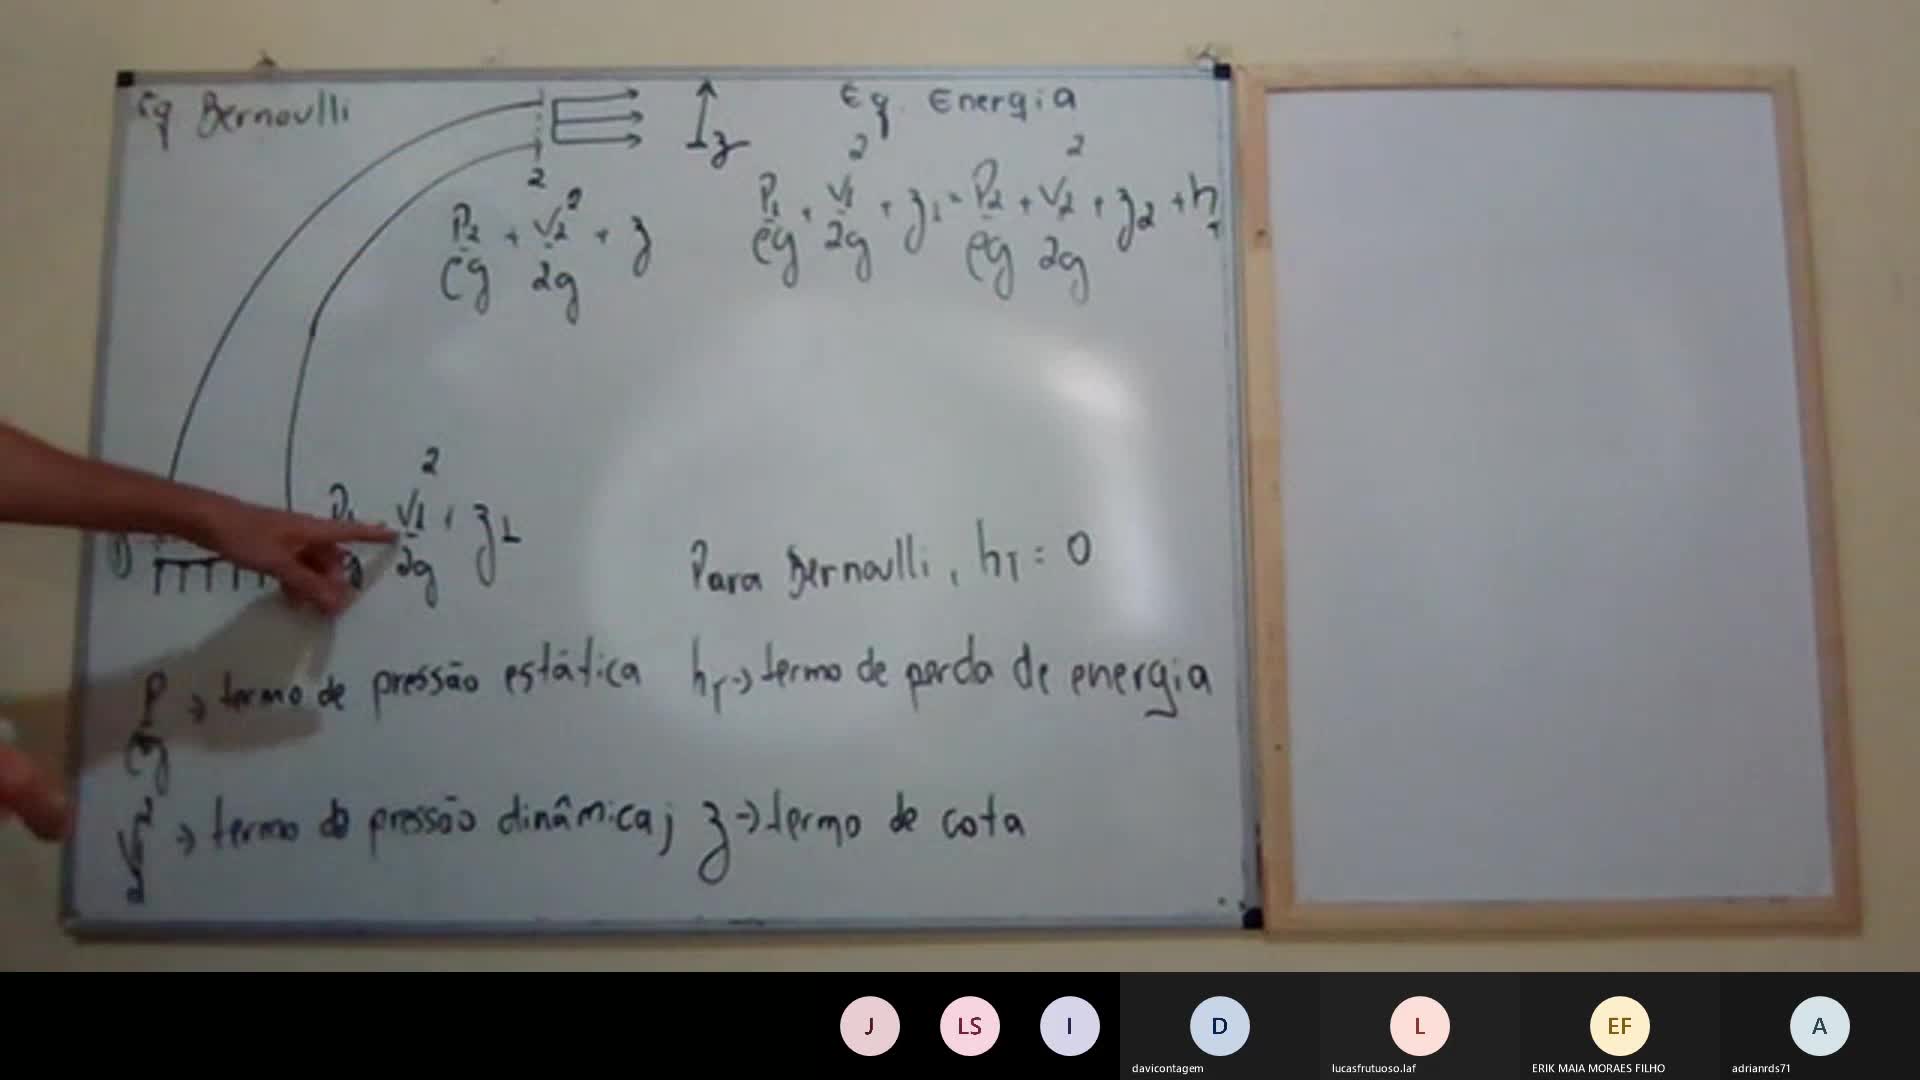 Eq Bernoulli
2
P2/ρg + V2²/2g + z
z
Eq. Energia
P1/ρg + V1²/2g + z1 = P2/ρg + V2²/2g + z2 + hT
V1²/2g + z1
Para Bernoulli, hT = 0
P/ρg → termo de pressão estática
hT → termo de perda de energia
→ termo de pressão dinâmica; z → termo de cota
J
LS
I
D
L
EF
A
davicontagem
lucasfrutuoso.laf
ERIK MAIA MORAES FILHO
adrianrds71